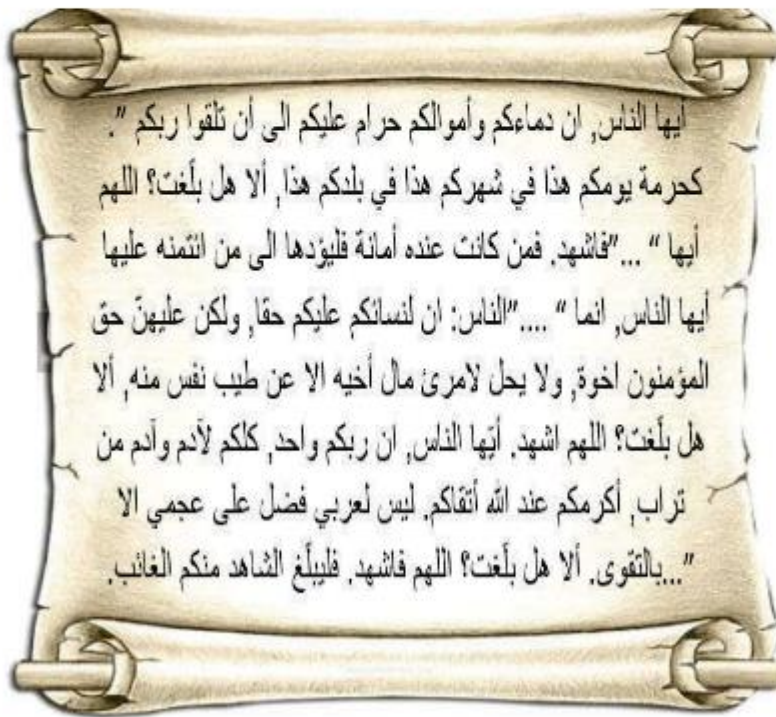 أيها الناس, ان دماءكم وأموالكم حرام عليكم الى أن تلقوا ربكم ".
كحرمة يومكم هذا في شهركم هذا في بلدكم هذا, ألا هل بلّغت؟ اللهم
أيها " ..."فاشهد. فمن كانت عنده أمانة فليؤدها الى من ائتمنه عليها
أيها الناس, انما " ...."الناس: ان لنسائكم عليكم حقا, ولكن عليهنّ حق
المؤمنون اخوة, ولا يحل لامرئ مال أخيه الا عن طيب نفس منه, ألا
هل بلّغت؟ اللهم اشهد. أيّها الناس, ان ربكم واحد, كلكم لآدم وآدم من
تراب, أكرمكم عند الله أتقاكم. ليس لعربي فضل على عجمي الا
"...بالتقوى. ألا هل بلّغت؟ اللهم فاشهد. فليبلّغ الشاهد منكم الغائب.